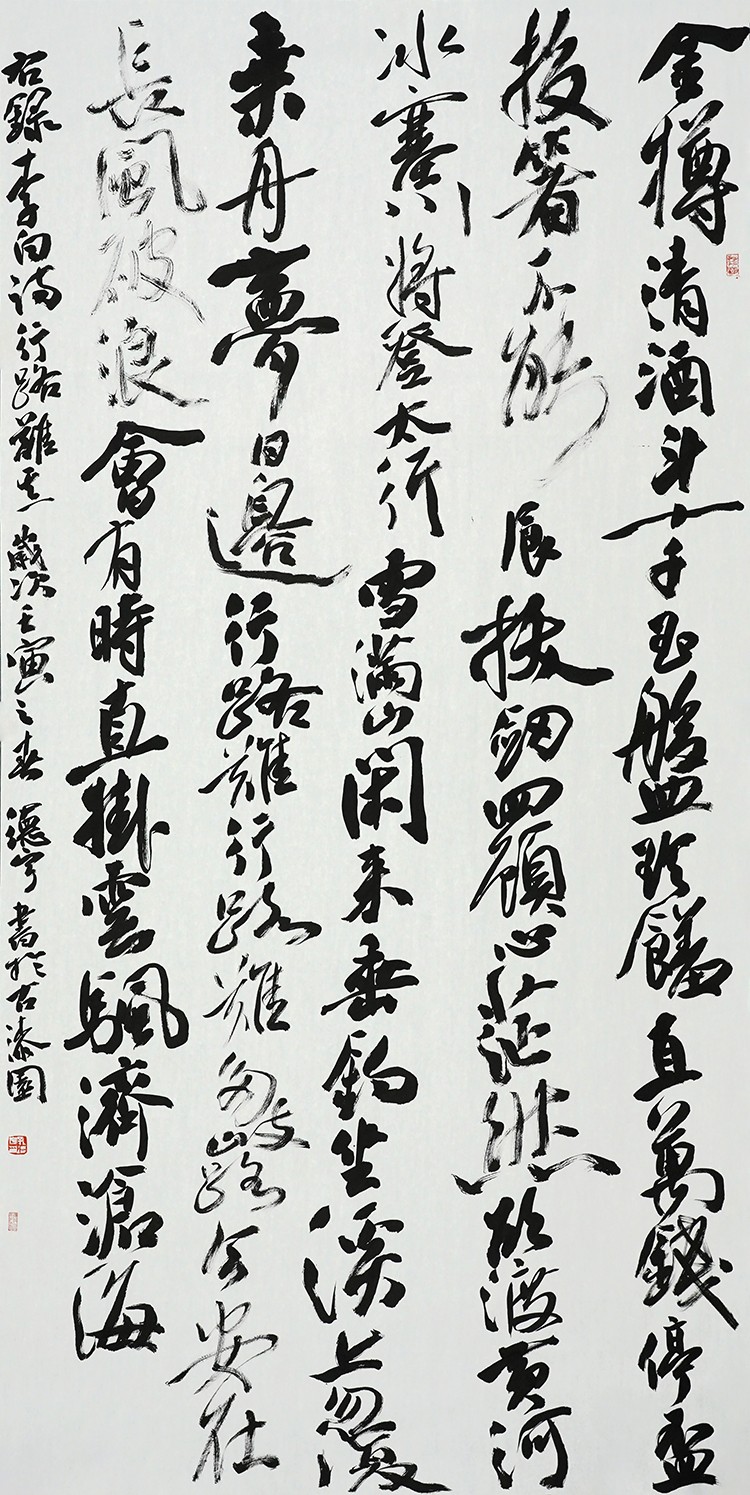 金樽清酒斗十千玉盤珍饈直萬錢停盃
投箸不能食拔劍四顧心茫然欲渡黃河
冰塞川將登太行雪滿山閑来垂釣坐溪上忽復
乘舟夢日邊行路難行路難多歧路今安在
長風破浪會有時直掛雲颿濟滄海
右錄李白詩行路難其一 歲次壬寅之春 德宁書於古漆園